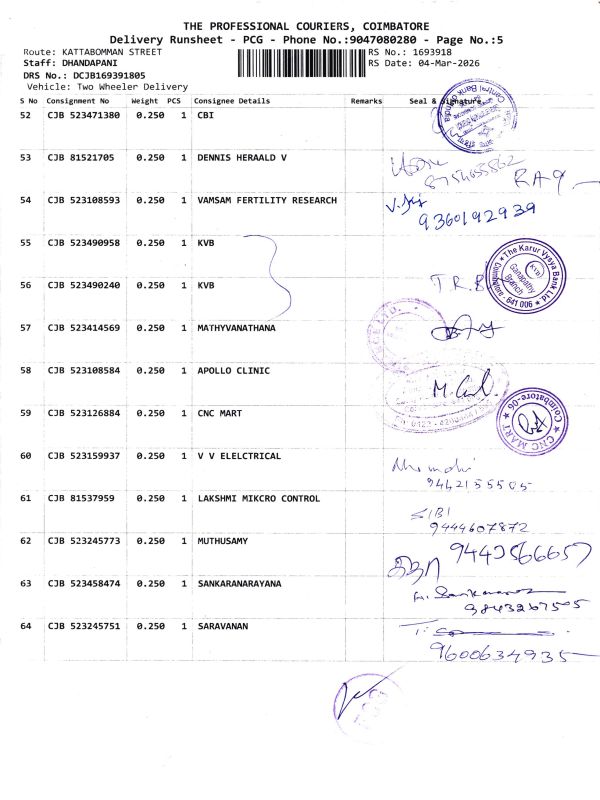 THE PROFESSIONAL COURIERS, COIMBATORE
Delivery Runsheet - PCG - Phone No.:9047080280 - Page No.:5
Route: KATTABOMMAN STREET RS No.: 1693918
Staff: DHANDAPANI RS Date: 04-Mar-2026
DRS No.: DCJB169391805
Vehicle: Two Wheeler Delivery
S No Consignment No Weight PCS Consignee Details Remarks Seal & Signature
52 CJB 523471380 0.250 1 CBI
Central Bank of India
53 CJB 81521705 0.250 1 DENNIS HERAALD V
8754655862
54 CJB 523108593 0.250 1 VAMSAM FERTILITY RESEARCH
9360192939
55 CJB 523490958 0.250 1 KVB
The Karur Vysya Bank Ltd. Ganapathy Branch KVB Coimbatore - 641 006
56 CJB 523490240 0.250 1 KVB
57 CJB 523414569 0.250 1 MATHYVANATHANA
58 CJB 523108584 0.250 1 APOLLO CLINIC
59 CJB 523126884 0.250 1 CNC MART
CNC MART Coimbatore-06
60 CJB 523159937 0.250 1 V V ELELCTRICAL
9442155505
61 CJB 81537959 0.250 1 LAKSHMI MIKCRO CONTROL
SIBI
9444607872
62 CJB 523245773 0.250 1 MUTHUSAMY
9443566657
63 CJB 523458474 0.250 1 SANKARANARAYANA
9843267505
64 CJB 523245751 0.250 1 SARAVANAN
9600634935